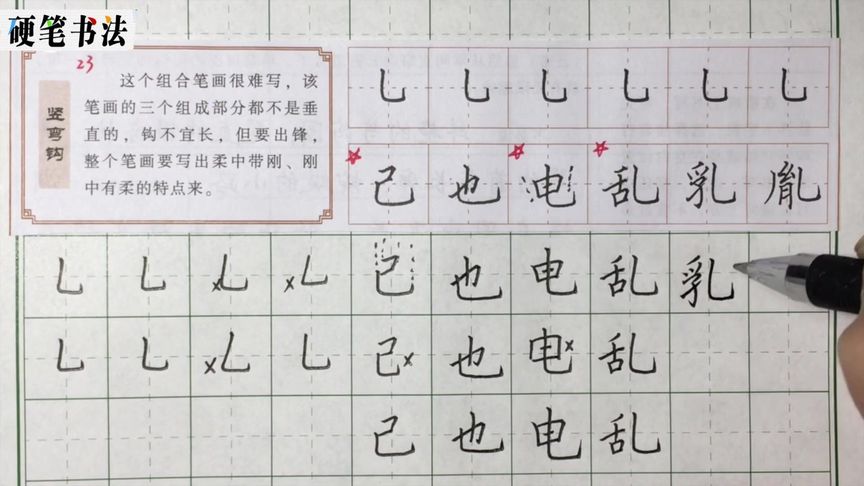 硬笔书法
23
竖弯钩
这个组合笔画很难写，该
笔画的三个组成部分都不是垂
直的，钩不宜长，但要出锋，
整个笔画要写出柔中带刚、刚
中有柔的特点来。
乚 乚 乚 乚 乚 乚
己 也 电 乱 乳 胤
乚 乚 乚 乚 己 也 电 乱 乳
乚 乚 乚 乚 己 也 电 乱
己 也 电 乱